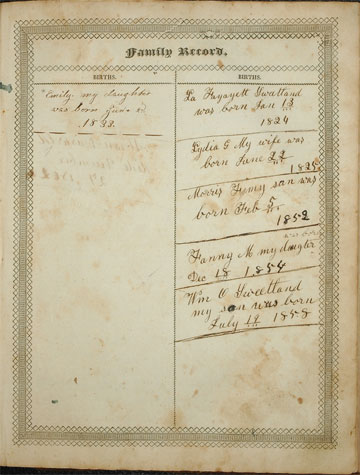 Family Record.
BIRTHS.
Emily my daughter
was born June
1833.
BIRTHS.
La Fayayett Sweetland
was born Jan 13
1824
Lydia G My wife was
born June 22
Morris F my son was
born Feb 5
1852
was born
Fanny M my daughter
Dec 18 1854
Wm O Sweetland
my son was born
July 12 1858